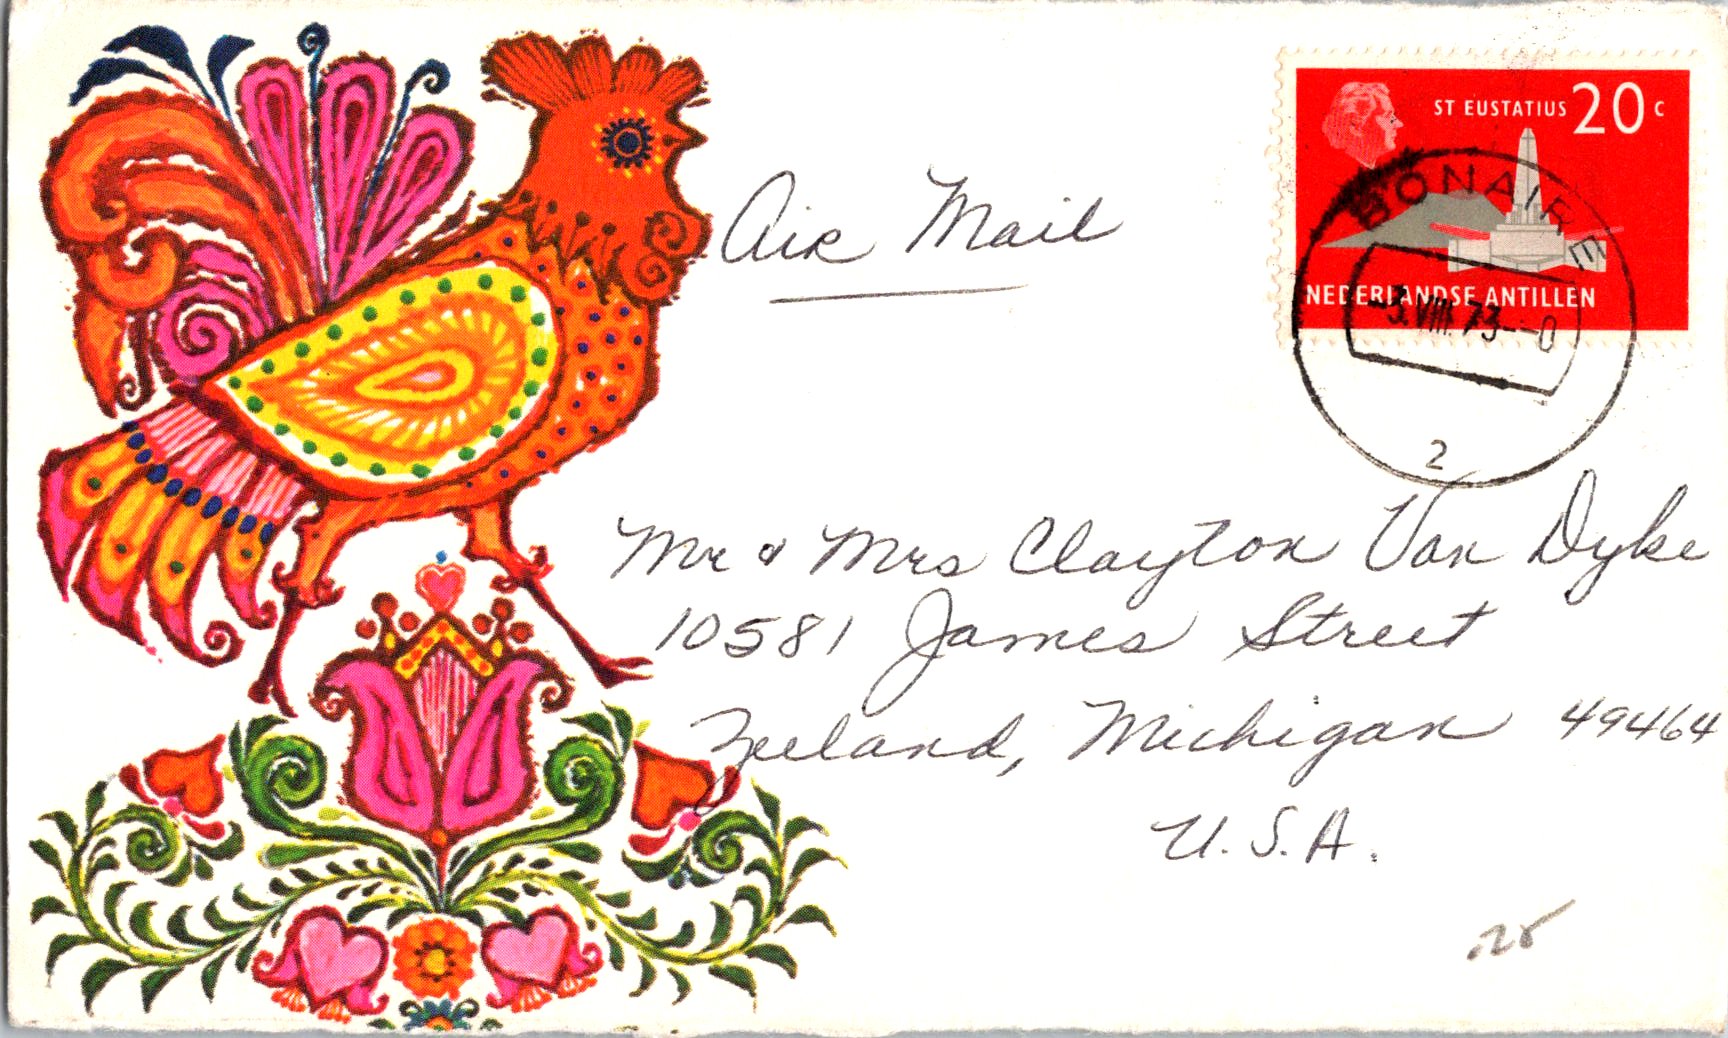 Air Mail
ST EUSTATIUS 20 C
NEDERLANDSE ANTILLEN
BONAIRE
-3.VIII.73--0
2
Mr & Mrs Clayton Van Dyke
10581 James Street
Zeeland, Michigan 49464
U.S.A.
.25